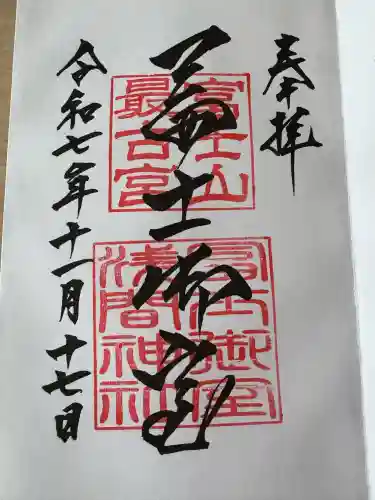 奉拝
冨士御室
富士山
最古宮
冨士御室
浅間神社
令和七年十一月十七日